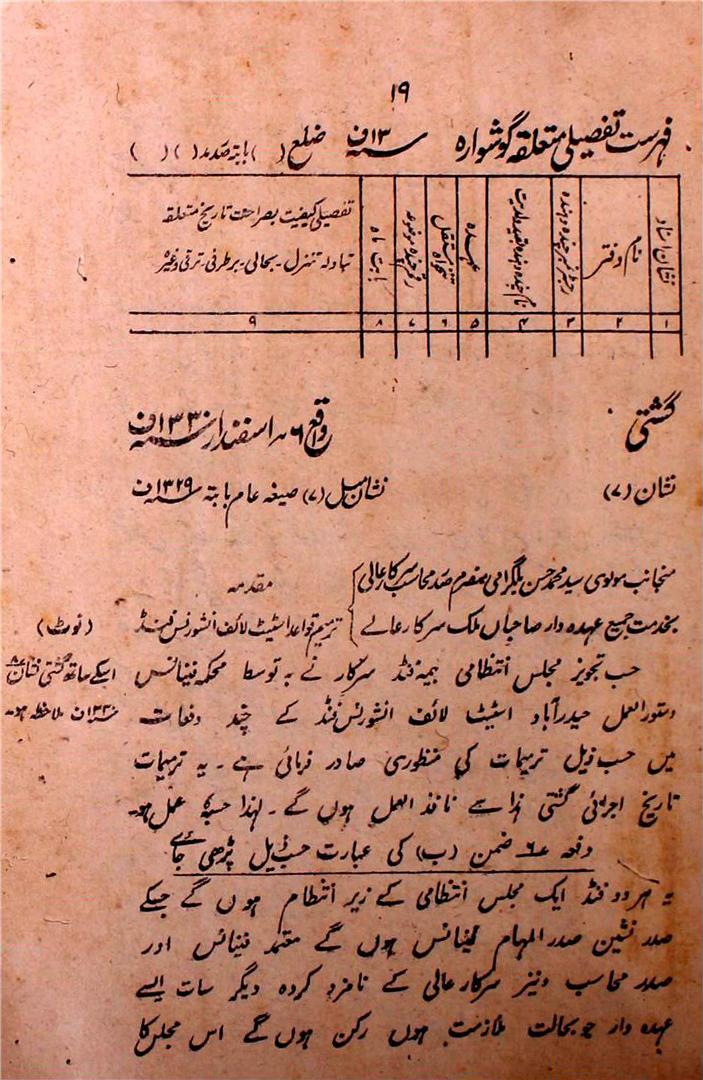 ۱۹
فہرست تفصیلی متعلقہ گوشوارہ سنہ ۱۳ ف ضلع ( ) بابتہ صدمد ( ) ( )
نشان اسناد
نام دفتر
رجسٹر نمبر چندہ دہندہ
نام چندہ دہندہ بقید ولدیت
عہدہ
مستقل تنخواہ
رقم چندہ موضوعہ
بابت ماہ
تفصیلی کیفیت بصراحت تاریخ متعلقہ
تبادلہ تنزل۔ بحالی۔ برطرفی۔ ترقی وغیرہ
۱ ۲ ۳ ۴ ۵ ۶ ۷ ۸ ۹
گشتی واقع ۶ اسفندار سنہ ۱۳۳۰ ف
نشان (۷) نشان مسل (۷) صیغہ عام بابتہ سنہ ۱۳۲۹ ف
منجانب مولوی سید محمد حسن بلگرامی منصرم صدر محاسب سرکار عالی
مقدمہ
بخدمت جمیع عہدہ دار صاحبان ملک سرکار عالے
ترمیم قواعد اسٹیٹ لائف انشورنس فنڈ
(نوٹ)
اسکے ساتھ گشتی نشان
سنہ ۱۳۳۰ ف ملاحظہ ہو۔
حسب تجویز مجلس انتظامی بیمہ فنڈ سرکار نے بہ توسط محکمہ فینانس
دستور العمل حیدرآباد اسٹیٹ لائف انشورنس فنڈ کے چند دفعات
میں حسب ذیل ترمیمات کی منظوری صادر فرمائی ہے۔ یہ ترمیمات
تاریخ اجرائی گشتی ہذا سے نافذ العمل ہوں گے۔ لہذا حسبہ عمل ہو۔
دفعہ ۶ ضمن (ب) کی عبارت حسب ذیل پڑھی جائے
یہ ہر دو فنڈ ایک مجلس انتظامی کے زیر انتظام ہوں گے جسکے
صدر نشین صدر المہام فینانس ہوں گے معتمد فینانس اور
صدر محاسب و نیز سرکار عالی کے نامزد کردہ دیگر سات ایسے
عہدہ دار جو بحالت ملازمت ہوں رکن ہوں گے اس مجلس کا